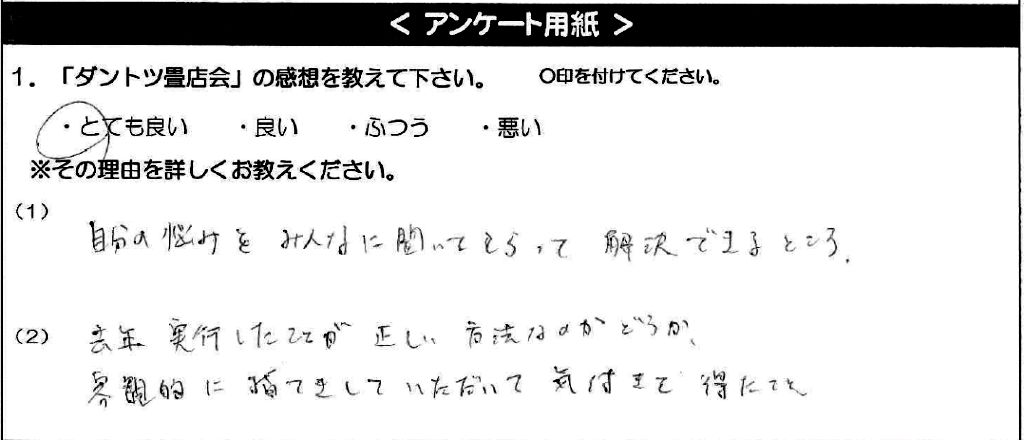 ＜ アンケート用紙 ＞
1. 「ダントツ畳店会」の感想を教えて下さい。 〇印を付けてください。
・とても良い ・良い ・ふつう ・悪い
※その理由を詳しくお教えください。
(1)
自分の悩みを みんなに聞いてもらって 解決できるところ.
(2) 去年 実行したことが 正しい 方法なのか どうか、
客観的に 指てきしていただいて 気付きを 得たこと